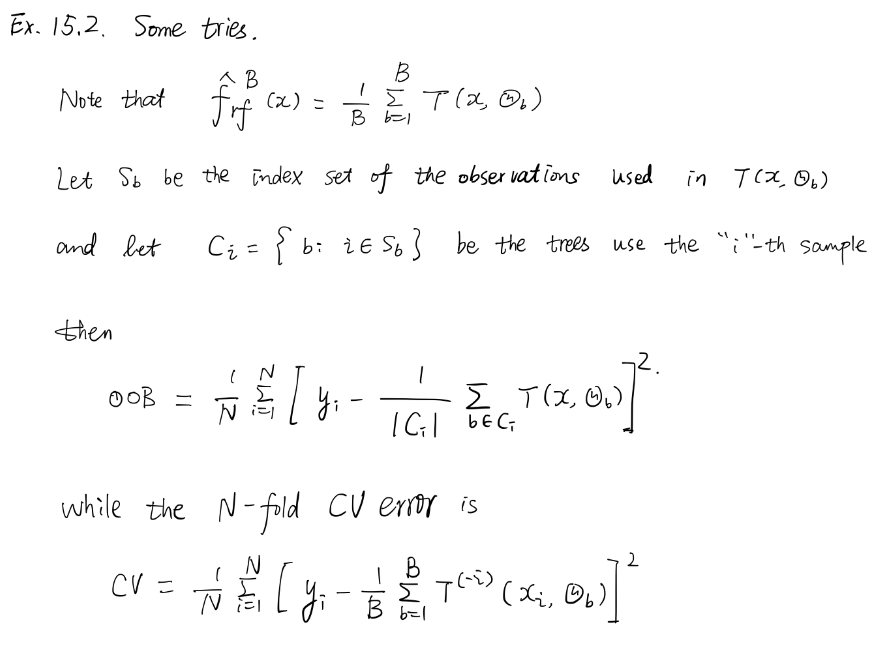 Ex. 15.2. Some tries.
Note that f̂_rf^B (x) = 1/B Σ_{b=1}^{B} T(x, Θ_b)
Let S_b be the index set of the observations used in T(x, Θ_b)
and let C_i = { b: i ∈ S_b } be the trees use the "i"-th sample
then
OOB = 1/N Σ_{i=1}^{N} [ y_i - 1/|C_i| Σ_{b∈C_i} T(x, Θ_b) ]^2.
while the N-fold CV error is
CV = 1/N Σ_{i=1}^{N} [ y_i - 1/B Σ_{b=1}^{B} T^{(-i)} (x_i, Θ_b) ]^2